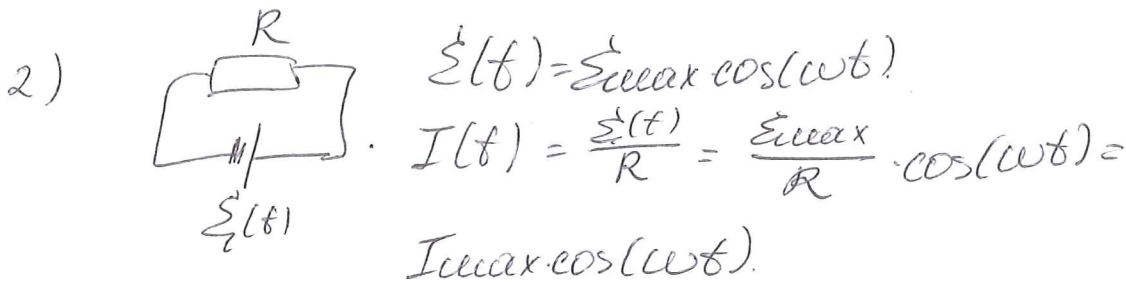 2)
R
ℰ(t)
ℰ(t) = ℰmax cos(ωt).
I(t) = ℰ(t)/R = ℰmax/R · cos(ωt) =
Imax·cos(ωt).